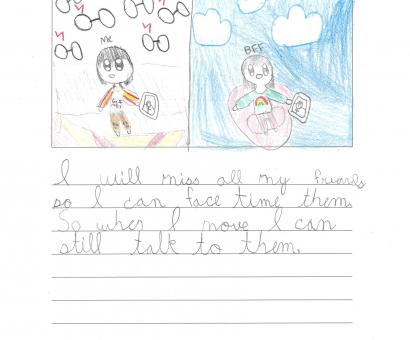 Me
BFF
I will miss all my friends
so I can face time them.
So when I move I can
still talk to them.